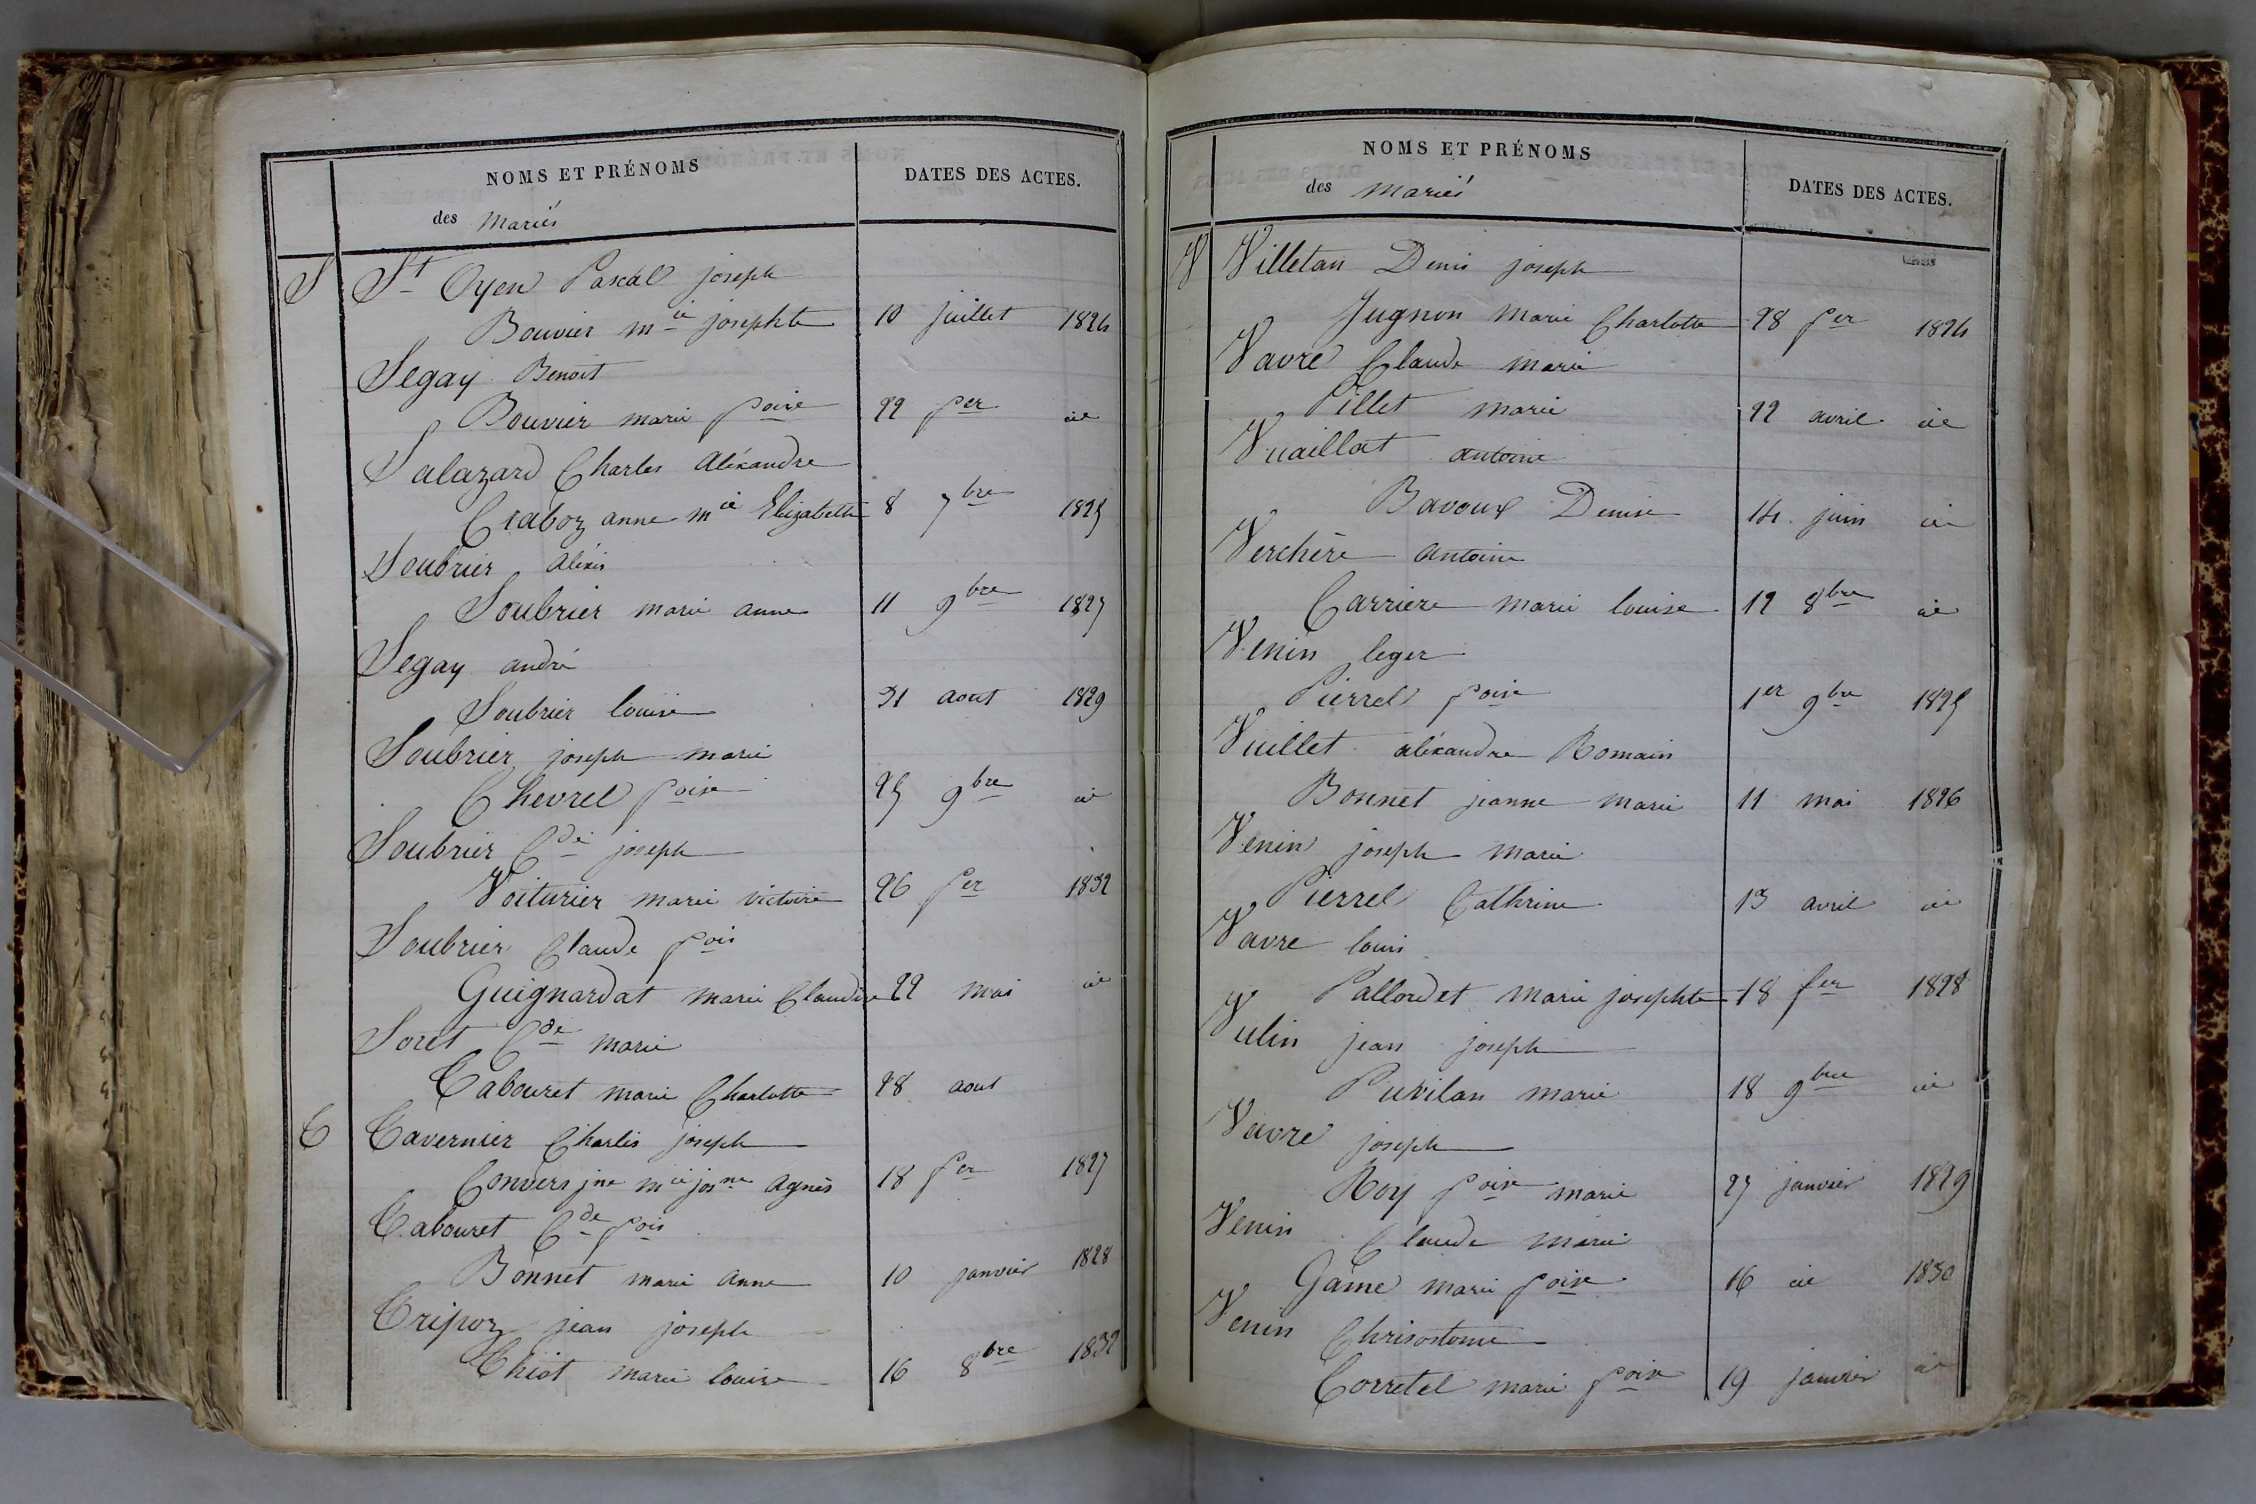 NOMS ET PRÉNOMS
DATES DES ACTES.
des mariés
S St Oyen Pascal joseph
Bouvier mie josephte 10 juillet 1824
Segay Benoit
Bouvier marie foise 22 fer id
Salazard Charles aléxandre
Craboz anne mie Elizabeth 8 7bre 1825
Soubrier aléxis
Soubrier marie anne 11 9bre 1827
Segay andré
Soubrier louise 31 aout 1829
Soubrier joseph marie
Chevrel foise 25 9bre id
Soubrier Cde joseph
Voiturier marie victoire 26 fer 1832
Soubrier Claude fois
Guignardat marie Claudine 22 mai id
Soret Cde marie
Tabouret marie Charlotte 28 aout
T Tavernier Charles joseph
Convers jne mie josne agnès 18 fer 1827
Tabouret Cde fois
Bonnet marie anne 10 janvier 1828
Tripoz jean joseph
Thiot marie louise 16 8bre 1832
NOMS ET PRÉNOMS
DATES DES ACTES.
des mariés
V Villetan Denis joseph
Jugnon marie Charlotte 28 fer 1824
Vavre Claude marie
Pillet marie 22 avril id
Vuaillat antoine
Bavoux Denise 14 juin id
Verchère antoine
Carriere marie louise 12 8bre id
Venin leger
Pierrel foise 1er 9bre 1825
Vuillet aléxandre Romain
Bonnet jeanne marie 11 mai 1826
Venin joseph marie
Pierrel Cathrine 13 avril id
Vavre louis
Palloudet marie josephte 18 fer 1828
Vulin jean joseph
Puvilan marie 18 9bre id
Vavre joseph
Roy foise marie 27 janvier 1829
Venin Claude marie
Game marie foise 16 id 1830
Venin Chrisostome
Corretel marie foise 19 janvier id